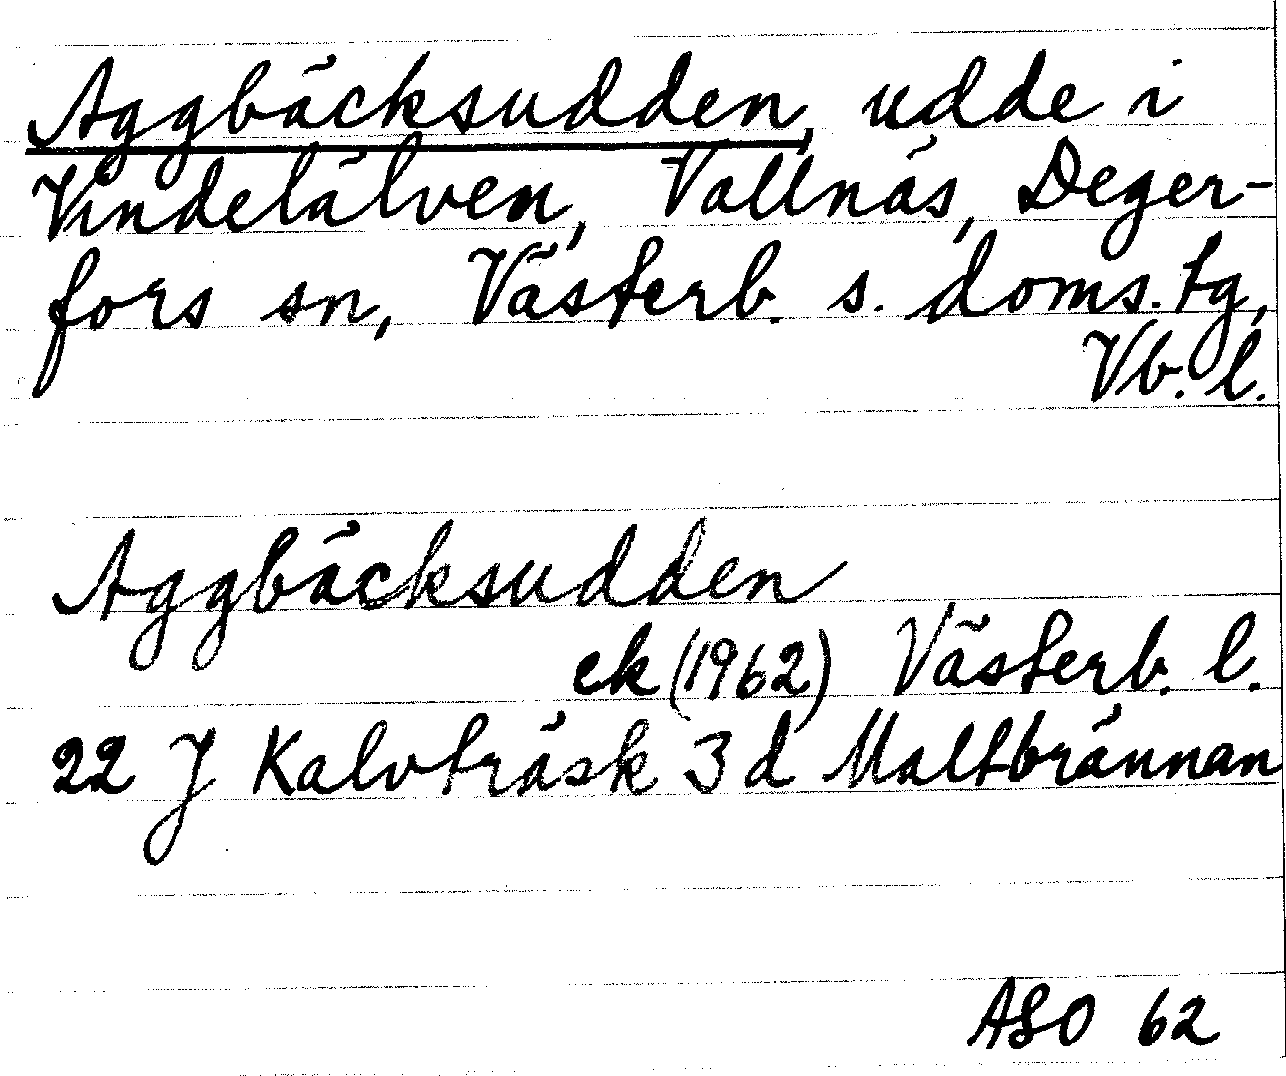 Aggbäcksudden, udde i
Vindelälven, Vallnäs, Deger-
fors sn, Västerb. s. doms. tg,
Vb. l.
Aggbäcksudden
ek (1962) Västerb. l.
22 J Kalvträsk 3 d Maltbrännan
ASO 62